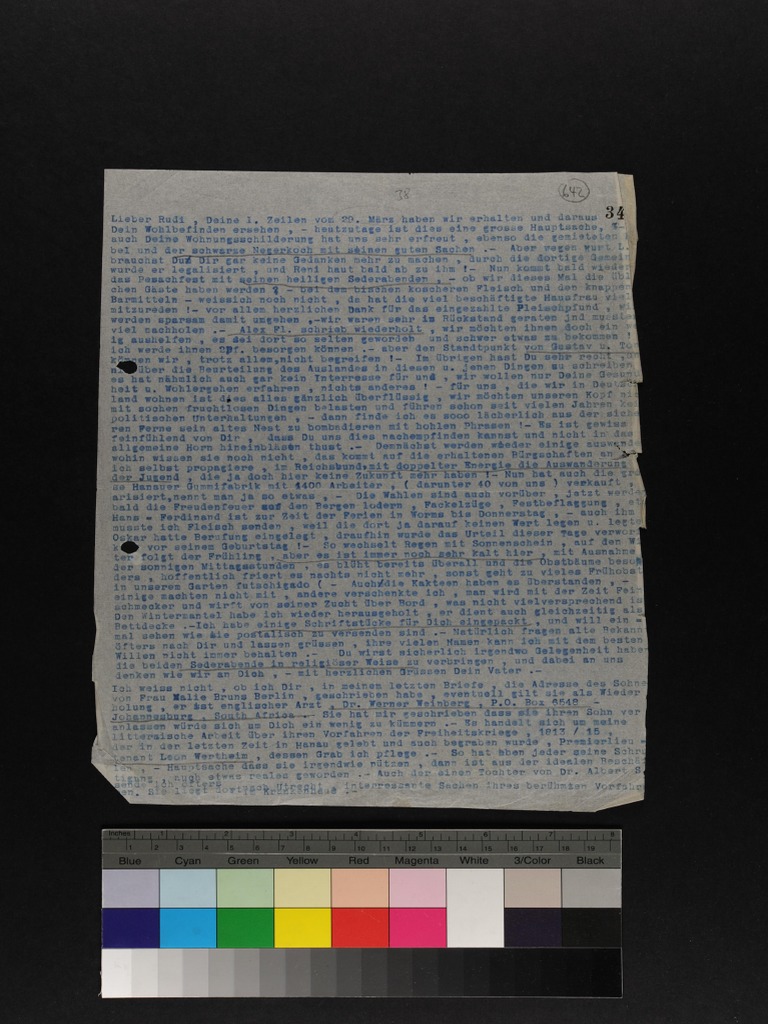 38
642
34
Lieber Rudi , Deine 1. Zeilen vom 29. März haben wir erhalten und daraus
Dein Wohlbefinden ersehen , - heutzutage ist dies eine grosse Hauptsache,
auch Deine Wohnungsschilderung hat uns sehr erfreut , ebenso die gemieteten
bel und der schwarze Negerkoch mit seinen guten Sachen .- Aber wegen Wurt L.
brauchst Du Dir gar keine Gedanken mehr zu machen , durch die dortige Gemein
wurde er legalisiert , und Heni haut bald ab zu ihm !- Nun kommt bald wieder
das Pesachfest mit seinen heiligen Sederabenden , - ob wir dieses Mal die übl
chen Gäste haben werden ? - bei dem bissen koscheren Fleisch und den knappen
Barmitteln - weissich noch nicht , da hat die viel beschäftigte Hausfrau viel
mitzureden !- vor allem herzlichen Dank für das eingezahlte Fleischpfund , wi
werden sparsam damit umgehen ,-wir waren sehr im Rückstand geraten und mussten
viel nachholen .- Alex Fl. schrieb wiederholt , wir möchten ihnen doch ein
ig aushelfen , es sei dort so selten geworden und schwer etwas zu bekommen !
ich werde ihnen 2pf. besorgen können .- aber den Standpunkt von Gustav u. To
können wir , trotz allem,nicht begreifen !- Im übrigen hast Du sehr recht ,
über die Beurteilung des Auslandes in diesen u. jenen Dingen zu schreiben
es hat nähmlich auch gar kein Interresse für uns , wir wollen nur Deine Gesun
heit u. Wohlergehen erfahren , nichts anderes ! - für uns , die wir in Deutsch
land wohnen ist dies alles gänzlich überflüssig , wir möchten unseren Kopf ni
mit sochen fruchtlosen Dingen belasten und führen schon seit vielen Jahren ke
politischen Unterhaltungen , - dann finde ich es sooo lächerlich aus der siche
ren Ferne sein altes Nest zu bombadieren mit hohlen Phrasen !- Es ist gewiss
feinfühlend von Dir , dass Du uns dies nachempfinden kannst und nicht in das
allgemeine Horn hineinblasen thust .- Demnächst werden wieder einige auswand
wohin wissen sie noch nicht , das kommt auf die erhaltenen Bürgschaften an
ich selbst propagiere , im Reichsbund,mit doppelter Energie die Auswanderung
der Jugend , die ja doch hier keine Zukunft mehr haben !- Nun hat auch die gr
se Hanauer Gummifabrik mit 1400 Arbeiter , ( darunter 40 von uns ) verkauft
arisiert,nennt man ja so etwas .- Die Wahlen sind auch vorüber , jetzt werde
bald die Freudenfeuer auf den Bergen lodern , Fackelzüge , Festbeflaggung ,
Hans - Ferdinand ist zur Zeit der Ferien in Worms bis Donnerstag , - auch ihm
musste ich Fleisch senden , weil die dort ja darauf keinen Wert legen u. legt
Oskar hatte Berufung eingelegt , draufhin wurde das Urteil dieser Tage verwor
vor seinem Geburtstag !- So wechselt Regen mit Sonnenschein , auf den W
ter folgt der Frühling , aber es ist immer noch sehr kalt hier , mit Ausnahme
der sonnigen Mittagsstunden , es blüht bereits überall und die Obstbäume beso
ders , hoffentlich friert es nachts nicht mehr , sonst geht zu vieles Frühobst
in unserem Garten futschigado ( - Auch die Kakteen haben es überstanden , -
einige machten nicht mit , andere verschenkte ich , man wird mit der Zeit Fei
schmecker und wirft von seiner Zucht über Bord , was nicht vielversprechend is
Den Wintermantel habe ich wieder herausgeholt , er dient auch gleichzeitig als
Bettdecke .-Ich habe einige Schriftstücke für Dich eingepackt , und will ein -
mal sehen wie sie postalisch zu versenden sind .- Natürlich fragen alte Bekann
öfters nach Dir und lassen grüssen , ihre vielen Namen kann ich mit dem besten
Willen nicht immer behalten .- Du wirst sicherlich irgendwo Gelegenheit haben
die beiden Sederabende in religiöser Weise zu verbringen , und dabei an uns
denken wie wir an Dich , - mit herzlichen Grüssen Dein Vater .-
Ich weiss nicht , ob ich Dir , in meinen letzten Briefe , die Adresse des Sohne
von Frau Malie Bruns Berlin , geschrieben habe , eventuell gilt sie als Wieder
holung , er ist englischer Arzt , Dr. Werner Weinberg , P.O. Box 6548 -
Johannesburg , South Africa .- Sie hat mir geschrieben dass sie ihren Sohn ver
anlassen würde sich um Dich ein wenig zu kümmern .- Es handelt sich um meine
litterarische Arbeit über ihren Vorfahren der Freiheitskriege , 1813 / 15 ,
der in der letzten Zeit in Hanau gelebt und auch begraben wurde , Premierlieu
tenant Leon Wertheim , dessen Grab ich pflege .- So hat eben jeder seine Schru
- Hauptsache dass sie irgendwie nützen , dann ist aus der idealen Beschä
tigung , auch etwas reales geworden .- Auch der einen Tochter von Dr. Albert S.
nach Utrecht , interressante Sachen ihres berühmten Vorfahr